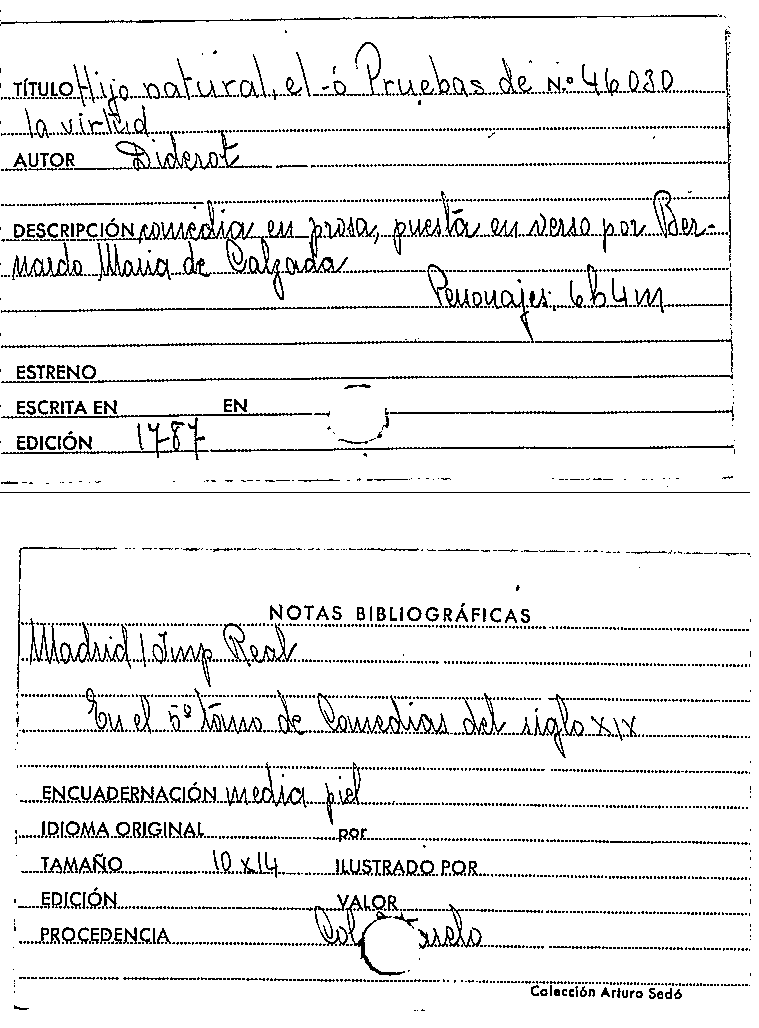 TÍTULO Hijo natural, el - ó Pruebas de Nº 46030
la virtud
AUTOR Diderot
DESCRIPCIÓN comedia en prosa, puesta en verso por Ber-
nardo Maria de Calzada
Personajes: 6h 4m
ESTRENO
ESCRITA EN EN
EDICIÓN 1787
NOTAS BIBLIOGRÁFICAS
Madrid / Imp Real
En el 5º tomo de Comedias del siglo XIX
ENCUADERNACIÓN media piel
IDIOMA ORIGINAL por
TAMAÑO 10 x 14 ILUSTRADO POR
EDICIÓN VALOR
PROCEDENCIA Col
Colección Arturo Sedó